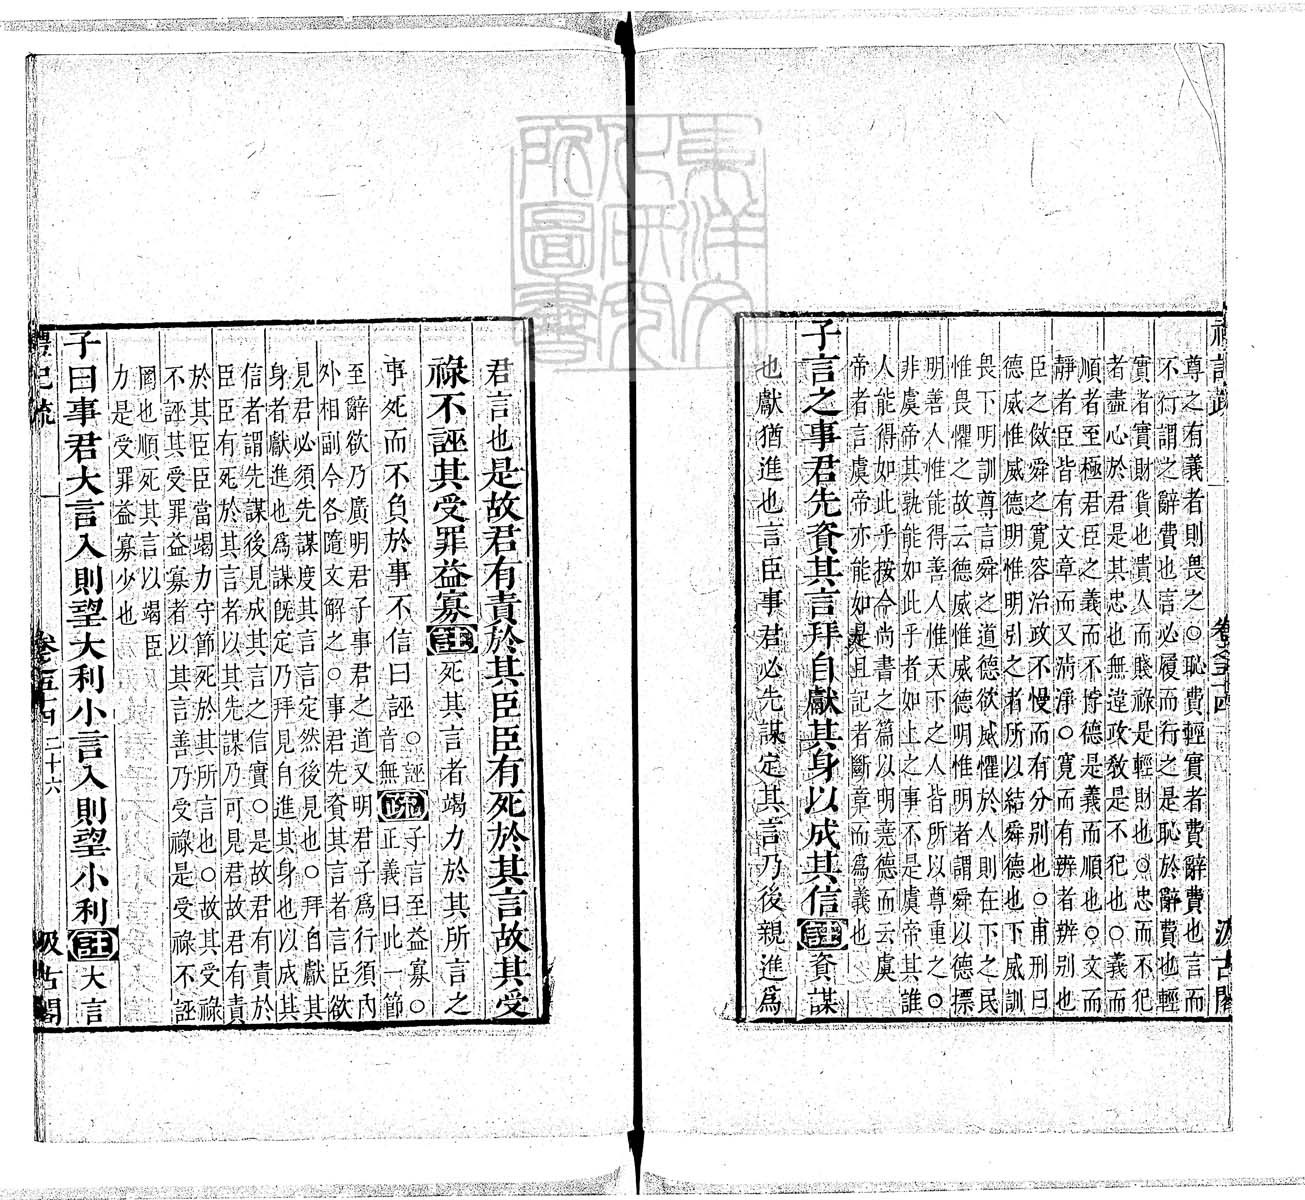 禮記疏 卷之五十四 汲古閣
尊之有義者則畏之○恥費輕實者費辭費也言而
不行謂之辭費也言必履而行之是恥於辭費也輕
實者實財貨也潰人而賤祿是輕財也○忠而不犯
者盡心於君是其忠也無違政敎是不犯也○義而
順者至極君臣之義而不悖德是義而順也○文而
靜者臣皆有文章而又清淨○寬而有辨者辨别也
臣之倣舜之寬容治政不慢而有分别也○甫刑曰
德威惟威德明惟明引之者所以結舜德也下威訓
畏下明訓尊言舜之道德欲威懼於人則在下之民
惟畏懼之故云德威惟威德明惟明者謂舜以德摽
明善人惟能得善人惟天下之人皆所以尊重之○
非虞帝其孰能如此乎者如上之事不是虞帝其誰
人能得如此乎按今尚書之篇以明堯德而云虞
帝者言虞帝亦能如是且記者斷章而爲義也
子言之事君先資其言拜自獻其身以成其信註資謀
也獻猶進也言臣事君必先謀定其言乃後親進爲
君言也是故君有責於其臣臣有死於其言故其受
祿不誣其受罪益寡註死其言者竭力於其所言之
事死而不負於事不信曰誣○誣音無疏子言至益寡○正義曰此一節
至辭欲乃廣明君子事君之道又明君子爲行須內
外相副今各隨文解之○事君先資其言者言臣欲
見君必須先謀度其言言定然後見也○拜自獻其
身者獻進也爲謀旣定乃拜見自進其身也以成其
信者謂先謀後見成其言之信實○是故君有責於
臣臣有死於其言者以其先謀乃可見君故君有責
於其臣臣當竭力守節死於其所言也○故其受祿
不誣其受罪益寡者以其言善乃受祿是受祿不誣
罔也順死其言以竭臣
力是受罪益寡少也
子曰事君大言入則望大利小言入則望小利註大言
禮記疏 卷之五十四 二十六 汲古閣